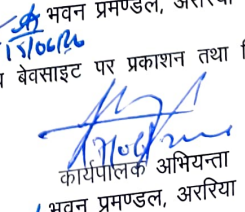 भवन प्रमण्डल, अररिया
15/06/26
बेवसाइट पर प्रकाशन तथा
कार्यपालक अभियन्ता
भवन प्रमण्डल, अररिया